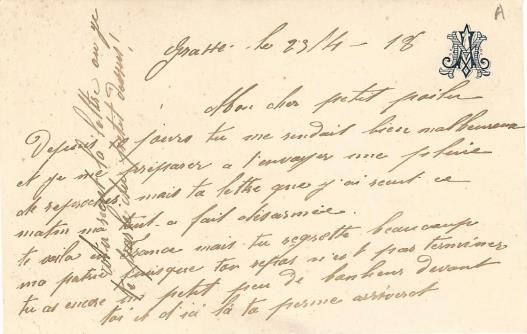 A
Grasse le 23/4 - 18
Mon cher petit poilu
Depuis jours tu me rendait bien malheureux
et je me préparer a t'envoyer une pleine
de reproches mais ta lettre que j'ai reçut ce
matin ma tout a fait désarmée.
te voila en France mais tu regrette beaucoup
ma patrie puisque ton repos n'est pas terminer
tu as encore un petit peu de bonheur devant
toi et d'ici là ta perme arriverat
la lettre ou je